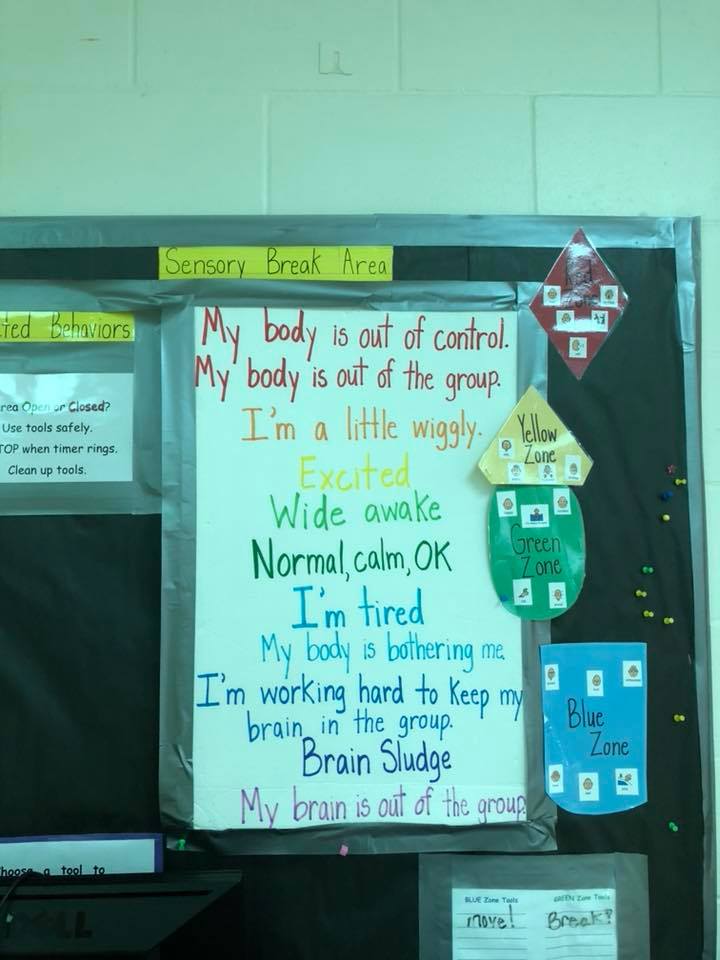 Sensory Break Area
ted Behaviors
rea Open or Closed?
Use tools safely.
TOP when timer rings.
Clean up tools.
My body is out of control.
My body is out of the group.
I'm a little wiggly.
Excited
Wide awake
Normal, calm, OK
I'm tired
My body is bothering me.
I'm working hard to keep my
brain in the group.
Brain Sludge
My brain is out of the group.
Red
Zone
Yellow
Zone
Green
Zone
Blue
Zone
hoose a tool to
DELL
BLUE Zone Tools
GREEN Zone Tools
move!
Break?